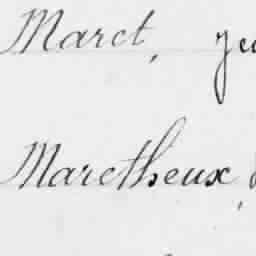 Maret,
Maretheux